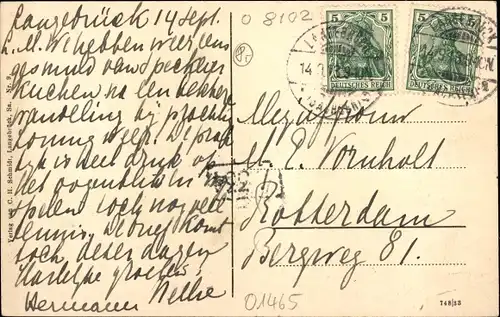 Langebrück 14 Sept.
L. M. We hebben weer eens
gesmuld van speckter
kuchen na een lekkere
wandeling bij prachtig
zonnig weer. De prak
tyk is heel druk op
het oogenblik en
spelen toch nog veel
tennis. De brief komt
toch, dezer dagen
hartelijke groeten
Hermann Nellie
O 8102
5 5
DEUTSCHES REICH DEUTSCHES REICH
LANGEBRÜCK
14.9.
Mejuffrouw
M. E. Vornholt
Rotterdam
Bergweg 81.
01465
748/13
Verlag von C. H. Schmidt, Langebrück, Sa. Nr.